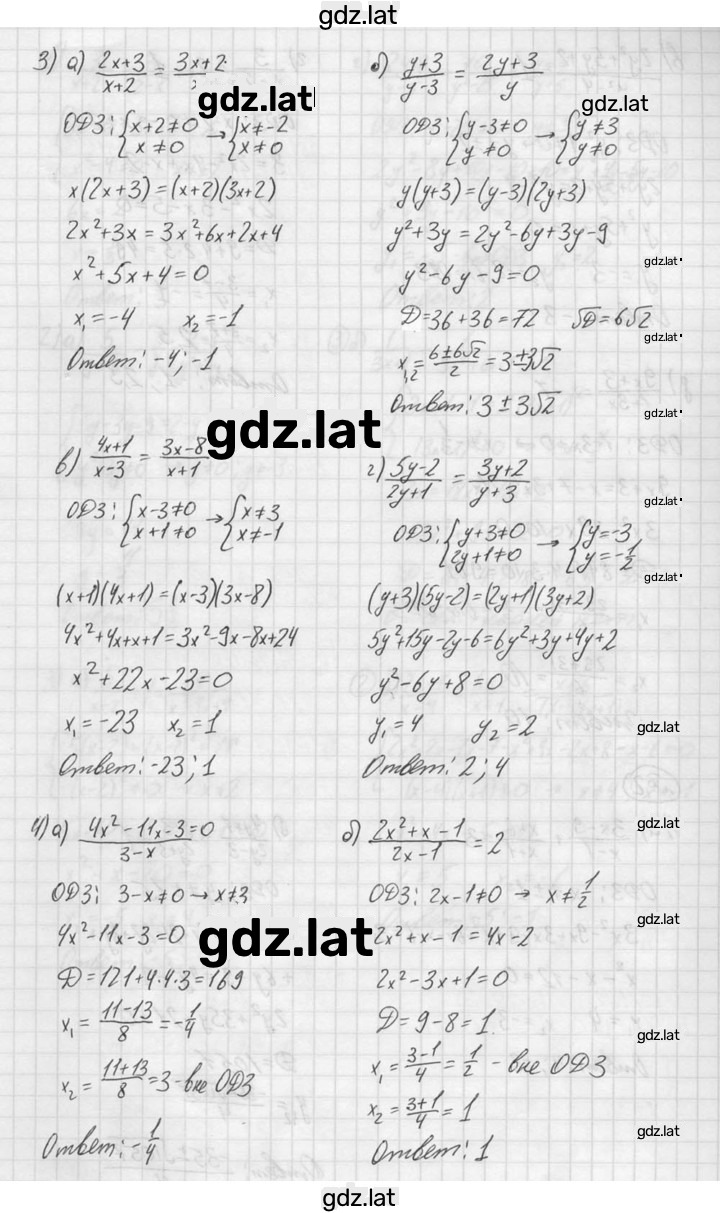 gdz.lat
3) а) (2x+3)/(x+2) = (3x+2)/
gdz.lat
ОДЗ: {x+2≠0 x≠0 → {x≠-2 x≠0
x(2x+3)=(x+2)(3x+2)
2x²+3x=3x²+6x+2x+4
x²+5x+4=0
x₁=-4 x₂=-1
Ответ: -4; -1
б) (y+3)/(y-3) = (2y+3)/y
gdz.lat
ОДЗ: {y-3≠0 y≠0 → {y≠3 y≠0
y(y+3)=(y-3)(2y+3)
y²+3y=2y²-6y+3y-9
gdz.lat
y²-6y-9=0
D=36+36=72 √D=6√2
gdz.lat
x₁,₂=(6±6√2)/2=3±3√2
Ответ: 3±3√2
gdz.lat
gdz.lat
в) (4x+1)/(x-3) = (3x-8)/(x+1)
ОДЗ: {x-3≠0 x+1≠0 → {x≠3 x≠-1
(x+1)(4x+1)=(x-3)(3x-8)
4x²+4x+x+1=3x²-9x-8x+24
x²+22x-23=0
x₁=-23 x₂=1
Ответ: -23; 1
г) (5y-2)/(2y+1) = (3y+2)/(y+3)
gdz.lat
ОДЗ: {y+3≠0 2y+1≠0 → {y=-3 y=-1/2
gdz.lat
(y+3)(5y-2)=(2y+1)(3y+2)
5y²+15y-2y-6=6y²+3y+4y+2
y²-6y+8=0
y₁=4 y₂=2
gdz.lat
Ответ: 2; 4
4) а) (4x²-11x-3)/(3-x)=0
ОДЗ: 3-x≠0 → x≠3
4x²-11x-3=0
gdz.lat
D=121+4·4·3=169
x₁=(11-13)/8=-1/4
x₂=(11+13)/8=3 - вне ОДЗ
Ответ: -1/4
gdz.lat
б) (2x²+x-1)/(2x-1)=2
ОДЗ: 2x-1≠0 → x≠1/2
gdz.lat
2x²+x-1=4x-2
2x²-3x+1=0
D=9-8=1
gdz.lat
x₁=(3-1)/4=1/2 - вне ОДЗ
x₂=(3+1)/4=1
gdz.lat
Ответ: 1
gdz.lat